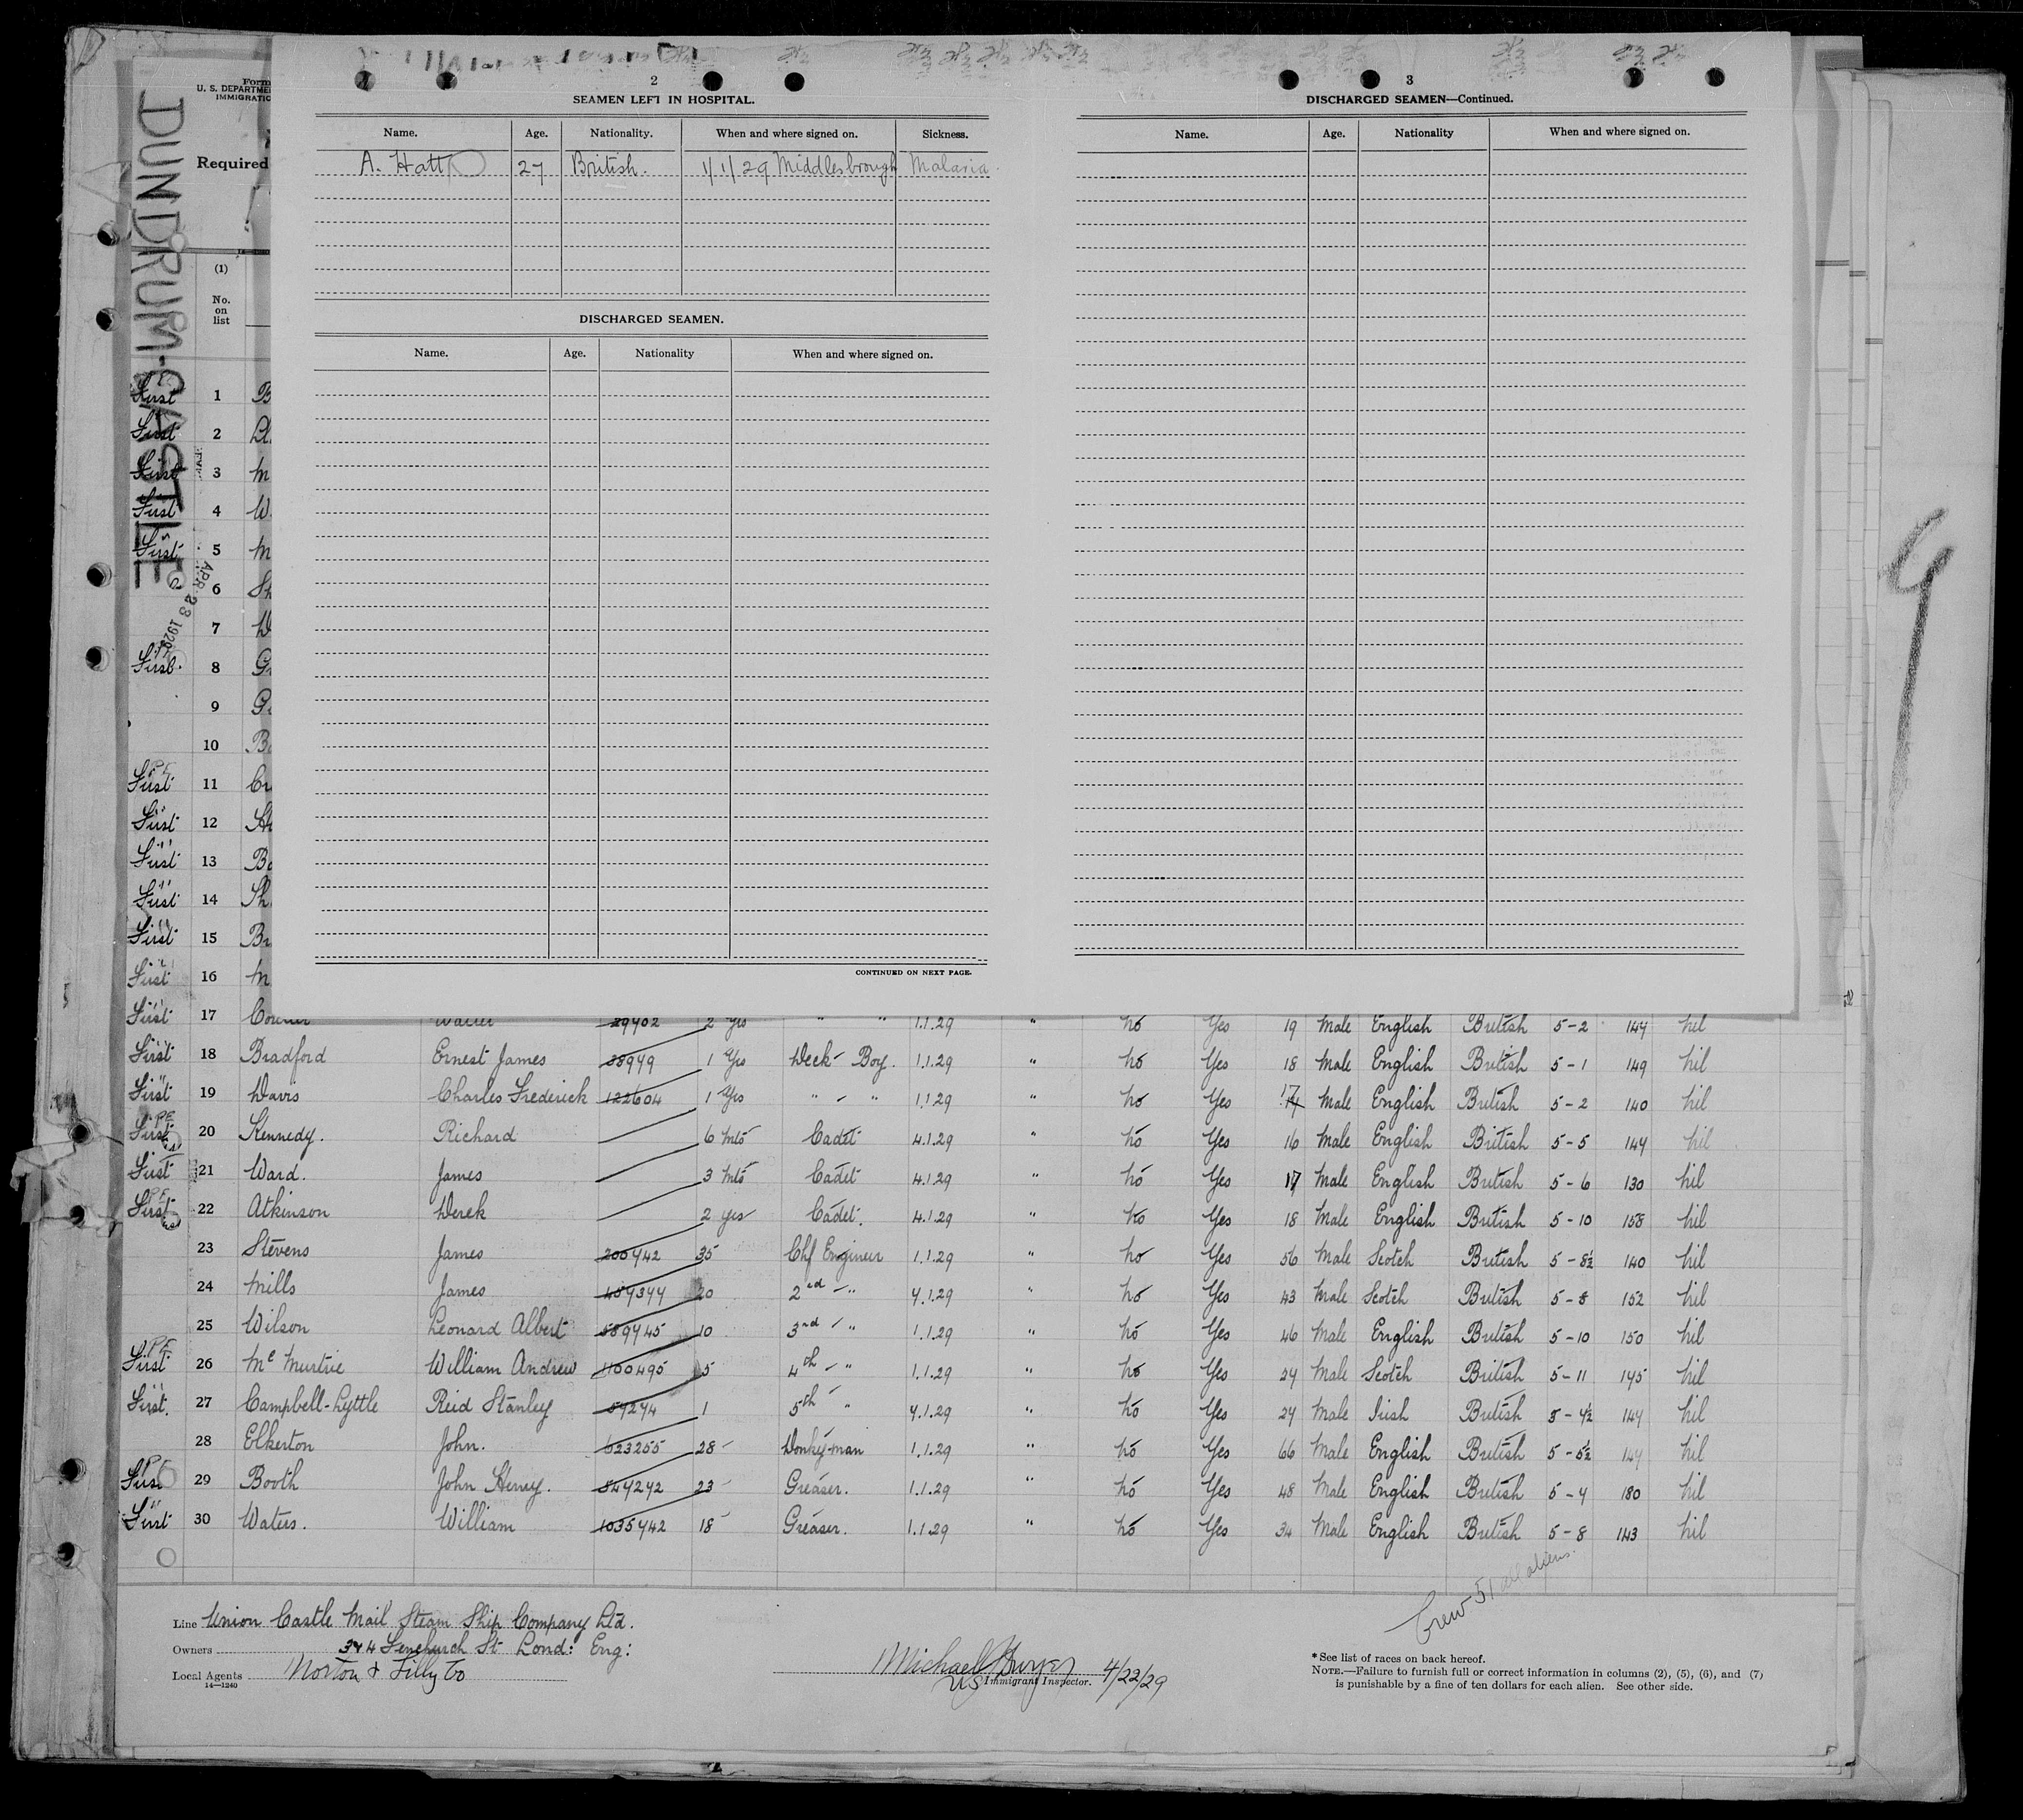 DUNDRUM-CASTLE
APR 23 1929
Form
U. S. DEPARTME
IMMIGRATIO
Required
(1)
No.
on
list
2
SEAMEN LEFT IN HOSPITAL.
Name. Age. Nationality. When and where signed on. Sickness.
A. Hatt 27 British. 1/1/29 Middlesbrough Malaria
DISCHARGED SEAMEN.
Name. Age. Nationality When and where signed on.
CONTINUED ON NEXT PAGE.
3
DISCHARGED SEAMEN—Continued.
Name. Age. Nationality When and where signed on.
9
First 1 B
First 2 Ll
First 3 M
First 4 W
First 5 M
6 Sh
7 D
First 8 G
9 G
10 Ba
First 11 Cr
First 12 St
First 13 Ba
First 14 Th
First 15 Br
First 16 M
First 17 Walter 29402 2 yrs " " 1.1.29 " No Yes 19 Male English British 5-2 144 Nil
First 18 Bradford Ernest James 38949 1 Yrs Deck-Boy. 1.1.29 " No Yes 18 Male English British 5-1 149 Nil
First 19 Davis Charles Frederick 122604 1 Yrs " - " 1.1.29 " No Yes 17 Male English British 5-2 140 Nil
First 20 Kennedy. Richard 6 Mts Cadet 4.1.29 " No Yes 16 Male English British 5-5 144 Nil
First 21 Ward. James 3 Mts Cadet 4.1.29 " No Yes 17 Male English British 5-6 130 Nil
First 22 Atkinson Derek 2 yrs Cadet. 4.1.29 " No Yes 18 Male English British 5-10 158 Nil
23 Stevens James 200442 35 Chf Engineer 1.1.29 " No Yes 56 Male Scotch British 5-8½ 140 Nil
24 Mills James 20 2nd -" 4.1.29 " No Yes 43 Male Scotch British 5-8 152 Nil
25 Wilson Leonard Albert 589445 10 3rd -" 1.1.29 " No Yes 46 Male English British 5-10 150 Nil
First 26 Mc Murtrie William Andrew 1100495 5 4th -" 1.1.29 " No Yes 24 Male Scotch British 5-11 145 Nil
First. 27 Campbell-Lyttle Reid Stanley 54274 1 5th " 4.1.29 " No Yes 24 Male Irish British 5-4½ 144 Nil
28 Elkerton John. 623255 28 Donkey-man 1.1.29 " No Yes 66 Male English British 5-5½ 144 Nil
First 29 Booth John Henry. 544242 23 Greaser. 1.1.29 " No Yes 48 Male English British 5-4 180 Nil
First 30 Waters. William 1035442 18 Greaser. 1.1.29 " No Yes 34 Male English British 5-8 143 Nil
Crew 51 all aliens.
Line Union Castle Mail Steam Ship Company Ltd.
Owners 3 & 4 Fenchurch St Lond: Eng:
Local Agents Norton & Lilly Co
14—1240
Michael Dwyer 4/23/29
US Immigrant Inspector.
* See list of races on back hereof.
NOTE.—Failure to furnish full or correct information in columns (2), (5), (6), and (7)
is punishable by a fine of ten dollars for each alien. See other side.